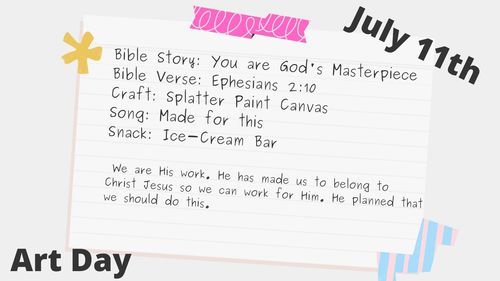 July 11th
Bible Story: You are God's Masterpiece
Bible Verse: Ephesians 2:10
Craft: Splatter Paint Canvas
Song: Made for this
Snack: Ice-Cream Bar
We are His work. He has made us to belong to
Christ Jesus so we can work for Him. He planned that
we should do this.
Art Day